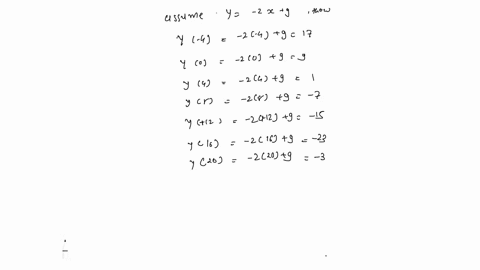 assume y = -2x+9, then
y(-4) = -2(-4)+9 = 17
y(0) = -2(0)+9 = 9
y(4) = -2(4)+9 = 1
y(8) = -2(8)+9 = -7
y(+12) = -2(+12)+9 = -15
y(16) = -2(16)+9 = -23
y(20) = -2(20)+9 = -3